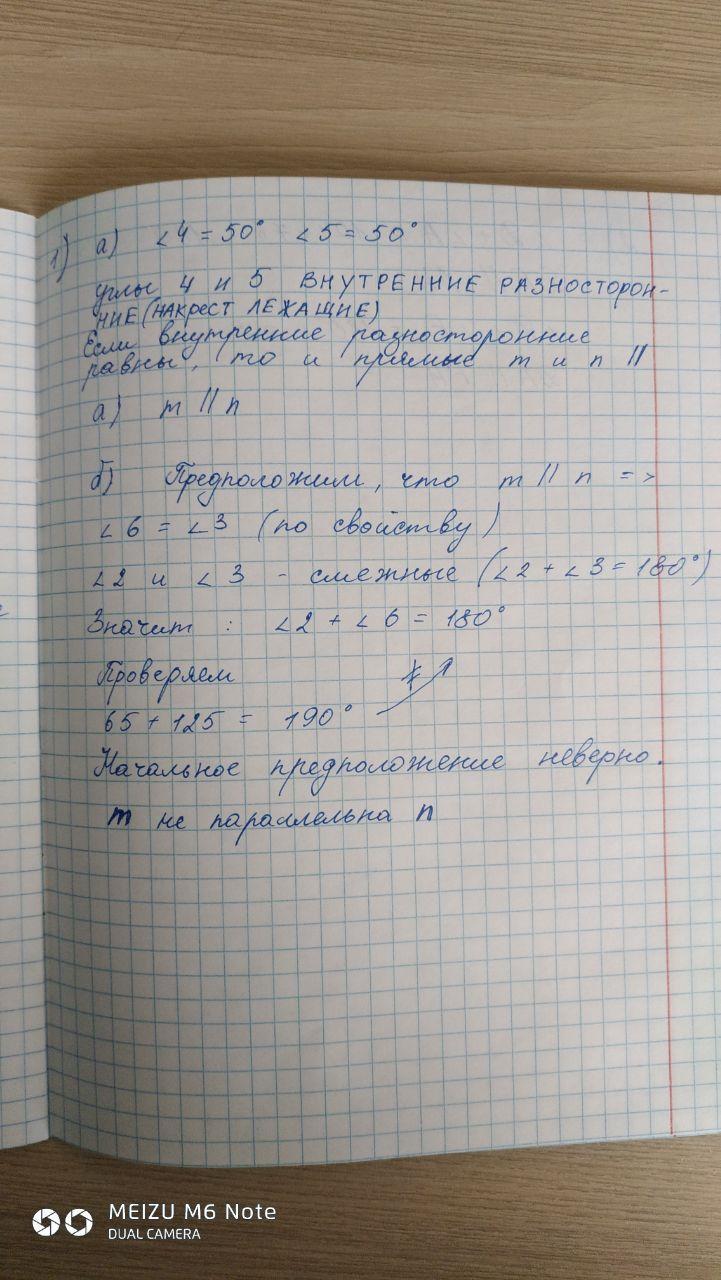 1) а) ∠4 = 50° ∠5 = 50°
углы 4 и 5 ВНУТРЕННИЕ РАЗНОСТОРОН-
НИЕ (НАКРЕСТ ЛЕЖАЩИЕ)
Если внутренние разносторонние
равны, то и прямые m и n //
а) m // n
б) Предположим, что m // n =>
∠6 = ∠3 (по свойству)
∠2 и ∠3 - смежные (∠2 + ∠3 = 180°)
Значит : ∠2 + ∠6 = 180°
Проверяем
65 + 125 = 190° ≠
Начальное предположение неверно.
m не параллельна n
MEIZU M6 Note
DUAL CAMERA